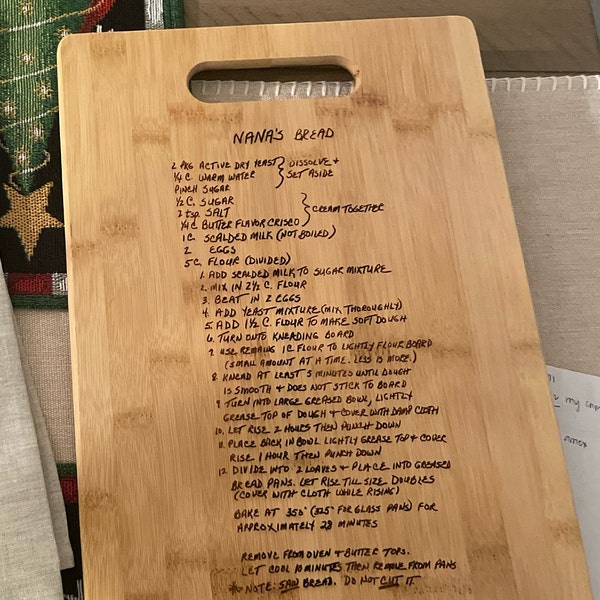 NANA'S BREAD
2 PKG ACTIVE DRY YEAST } DISSOLVE +
¼ C. WARM WATER SET ASIDE
PINCH SUGAR
½ C. SUGAR
2 tsp. SALT } CREAM TOGETHER
¼ C BUTTER FLAVOR CRISCO
1 C. SCALDED MILK (NOT BOILED)
2 EGGS
5 C. FLOUR (DIVIDED)
1. ADD SCALDED MILK TO SUGAR MIXTURE
2. MIX IN 2½ C. FLOUR
3. BEAT IN 2 EGGS
4. ADD YEAST MIXTURE (MIX THOROUGHLY)
5. ADD 1½ C. FLOUR TO MAKE SOFT DOUGH
6. TURN ONTO KNEADING BOARD
7. USE REMAING 1C FLOUR TO LIGHTLY FLOUR BOARD
(SMALL AMOUNT AT A TIME. LESS IS MORE.)
8 KNEAD AT LEAST 5 MINUTES UNTIL DOUGH
IS SMOOTH & DOES NOT STICK TO BOARD
9 TURN INTO LARGE GREASED BOWL, LIGHTLY
GREASE TOP OF DOUGH & COVER WITH DAMP CLOTH
10. LET RISE 2 HOURS THEN PUNCH DOWN
11. PLACE BACK IN BOWL LIGHTLY GREASE TOP & COVER
RISE 1 HOUR THEN PUNCH DOWN
12. DIVIDE INTO 2 LOAVES & PLACE INTO GREASED
BREAD PANS. LET RISE TILL SIZE DOUBLES
(COVER WITH CLOTH WHILE RISING)
BAKE AT 350° (325° FOR GLASS PANS) FOR
APPROXIMATELY 28 MINUTES
REMOVE FROM OVEN & BUTTER TOPS.
LET COOL 10 MINUTES THEN REMOVE FROM PANS
* NOTE: SAW BREAD. DO NOT CUT IT
my